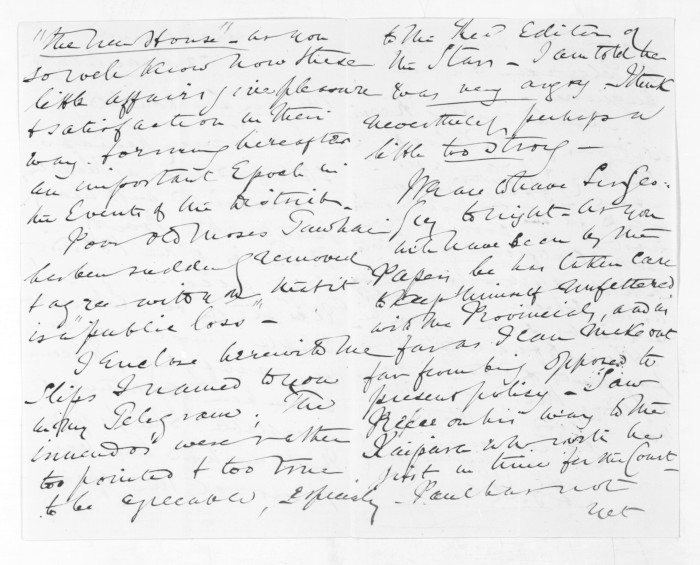 "The New House" - as you
so well know how these
little affairs give pleasure
& satisfaction in their
way. forming hereafter
an important Epoch in
the Events of the District -
Poor Old Moses Tawhai
has been suddenly removed
& agree with you that it
is a "public loss" -
I enclose herewith the
Slips I named to you
in my Telegram; The
inuendos were rather
too pointed & too true
to be agreeable, especially
to the Revd Editor of
the Star - I am told he
was very angry - I think
nevertheless, perhaps a
little too strong -
We are to have Sir Geo:
Grey tonight - as you
will have seen by the
Papers he has taken care
to keep himself unfettered
with the Provincials, and as
far as I can make out
far from being opposed to
present policy - I saw
on his way to the
Kaipara who will be
just in time for the Court -
has not
yet